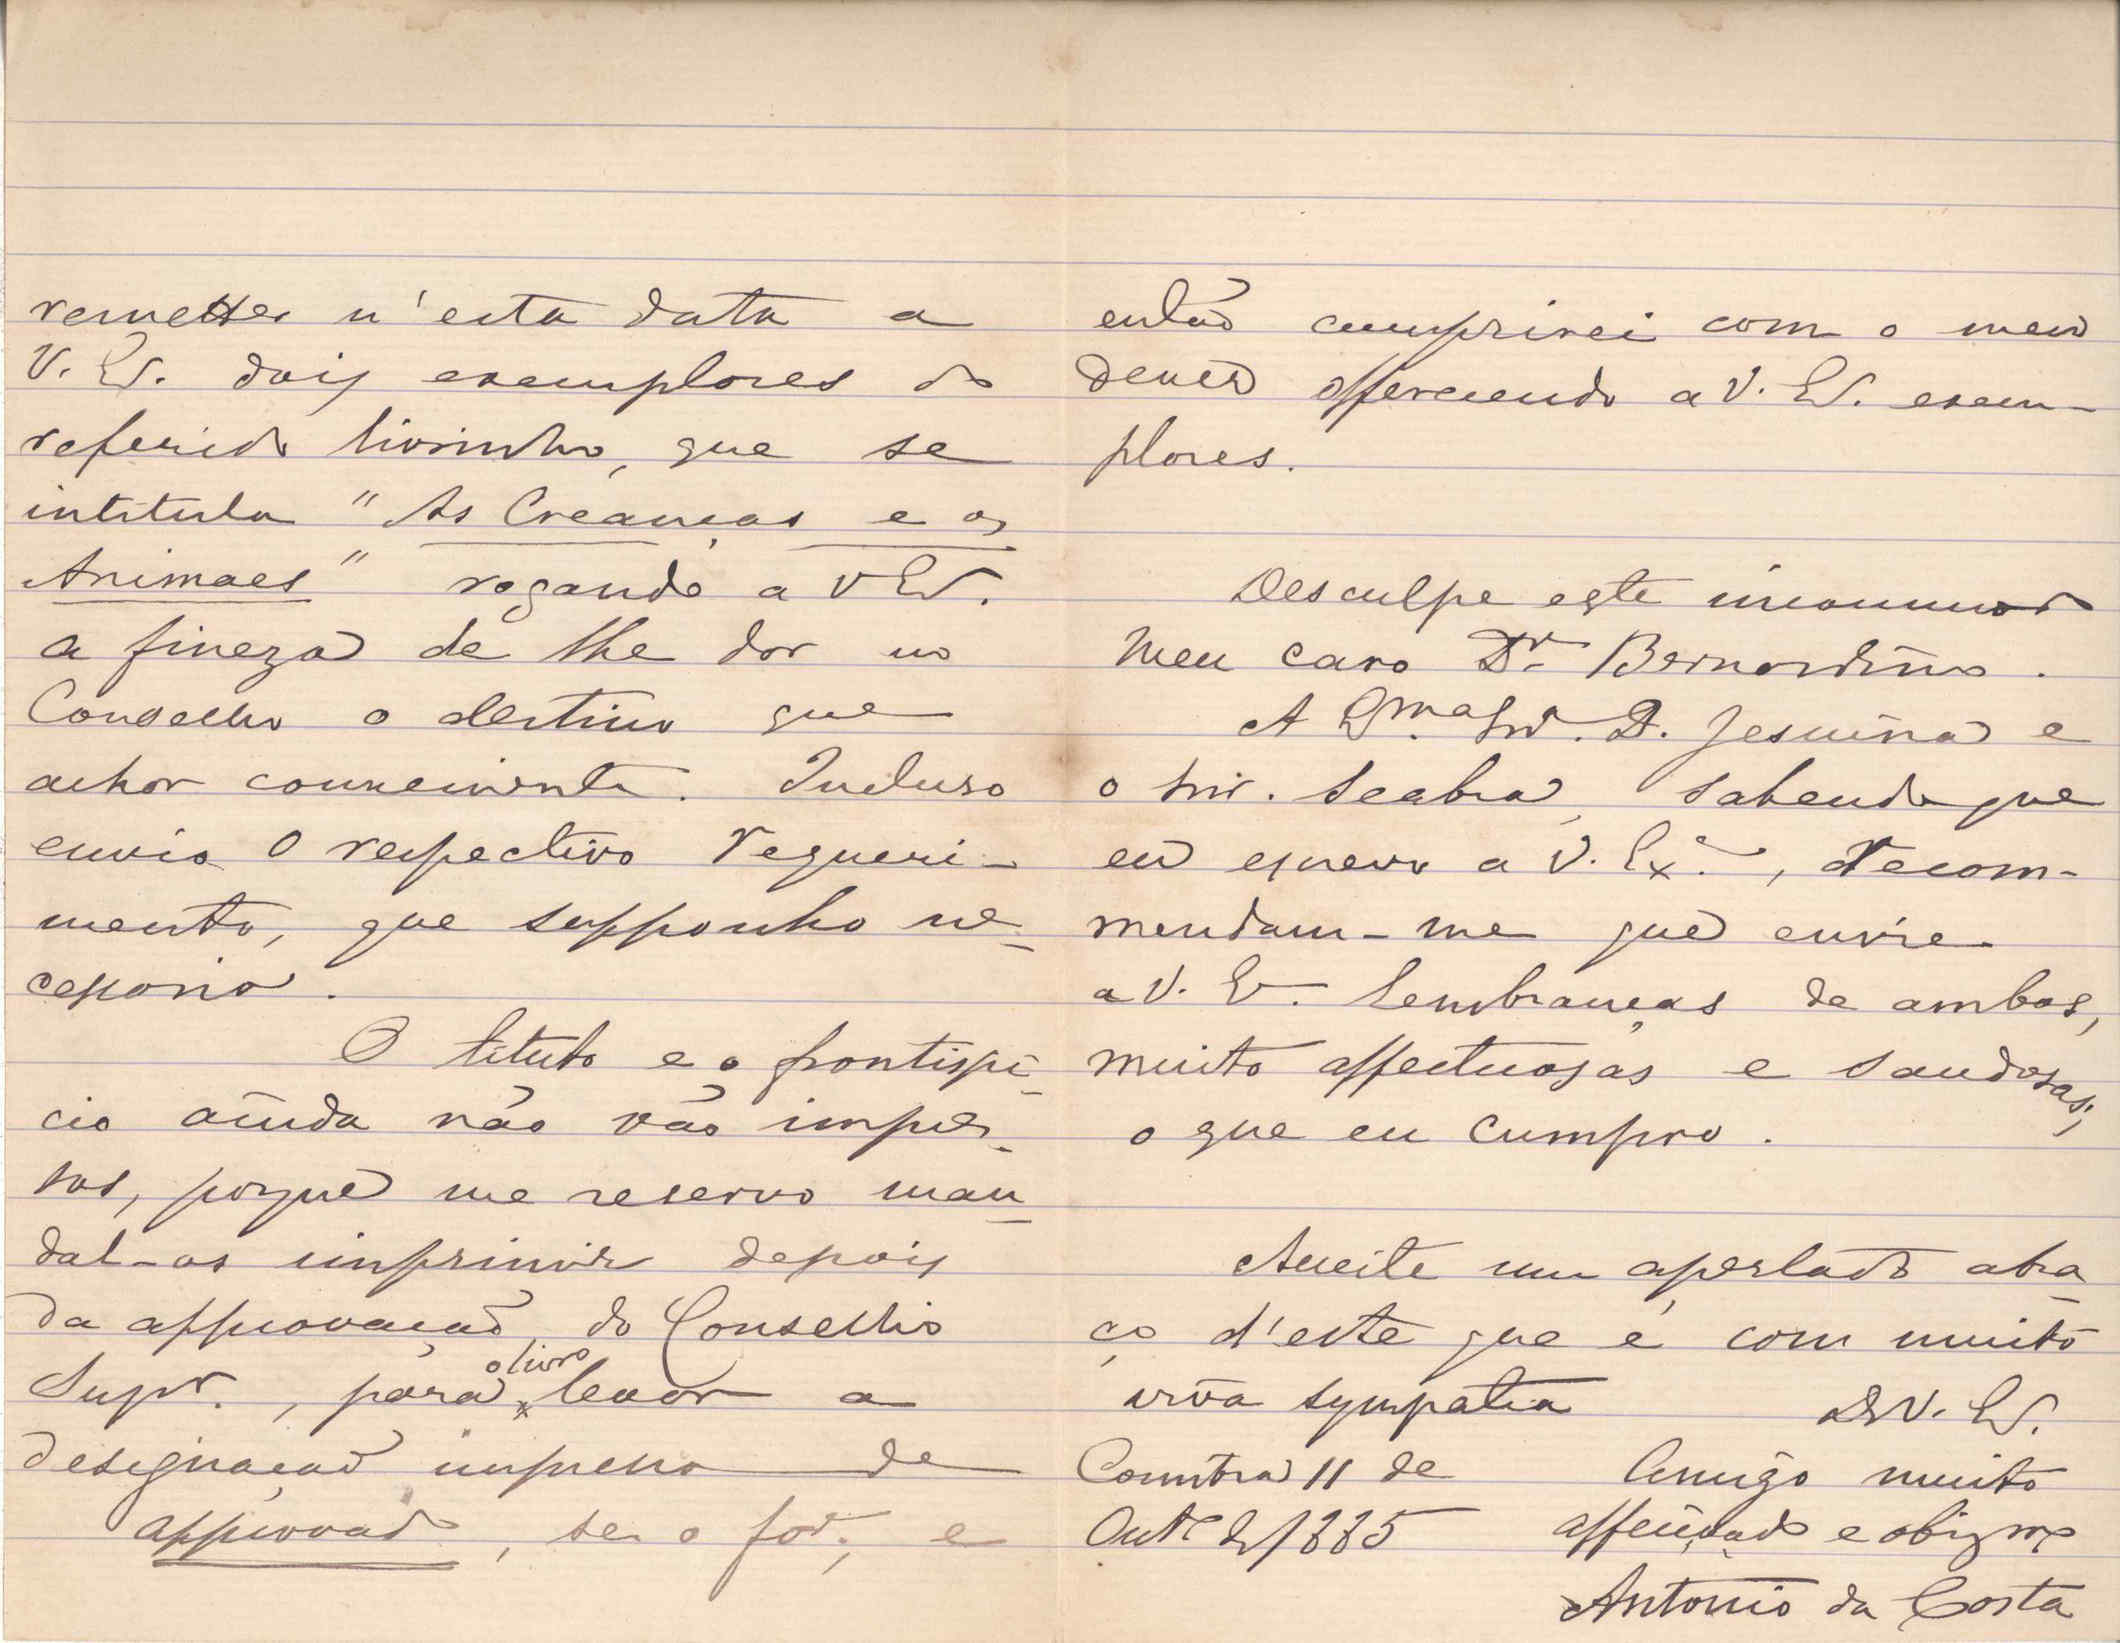 remetter n'esta data a
V. Ex. dois exemplares do
referido livrinho, que se
intitula "As Creanças e os
Animaes" rogando a V Ex.
a fineza de lhe dar no
Conselho o destino que
achar conveniente. Incluso
envio o respectivo requeri-
mento, que supponho ne-
cessario.
O titulo e o frontispi-
cio ainda não vão impres-
sos, porque me reservo man-
dal-os imprimir depois
da approvação do Conselho
Supr., para o livro levar a
designação impressa de
approvado, se o for; e
então cumprirei com o meu
dever offerecendo a V. Ex. exem-
plares.
Desculpe este incommodo
meu caro Dr. Bernardino.
A Exma Snr. D. Jesuina e
o Snr. Seabra, sabendo que
eu escrevo a V. Exa, recom-
mendam-me que envie
a V. Ex. lembranças de ambos,
muito affectuosas e saudosas;
o que eu cumpro.
Aceite um apertado abra-
ço d'este que é com muito
viva sympatia
De V. Ex.
Coimbra 11 de
Outr de 1885
Amigo muito
affeiçoado e obigmo
Antonio da Costa